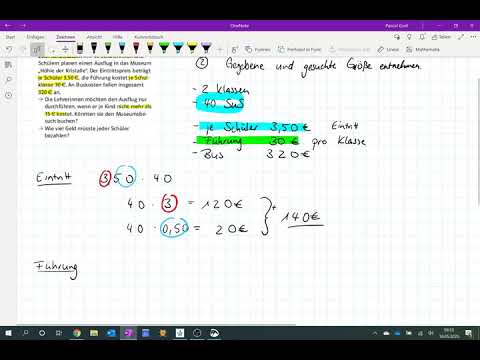 OneNote
Pascal Groß
Datei Start Einfügen Zeichnen Ansicht Hilfe Kursnotizbuch
Formen Freihand in Form Mathematik
Schülern planen einen Ausflug in das Museum
„Höhle der Kristalle“. Der Eintrittspreis beträgt
je Schüler 3,50 €, die Führung kostet je Schul-
klasse 30 €. An Buskosten fallen insgesamt
320 € an.
→ Die Lehrerinnen möchten den Ausflug nur
durchführen, wenn er je Kind nicht mehr als
15 € kostet. Könnten sie den Museumsbe-
such buchen?
→ Wie viel Geld müsste jeder Schüler
bezahlen?
② Gegebene und gesuchte Größe entnehmen.
- 2 Klassen
- 40 SuS
- je Schüler 3,50 € Eintritt
- Führung 30 € pro Klasse
- Bus 320 €
Eintritt 350 · 40
40 · 3 = 120 €
40 · 0,50 = 20 €
+ 140 €
Führung